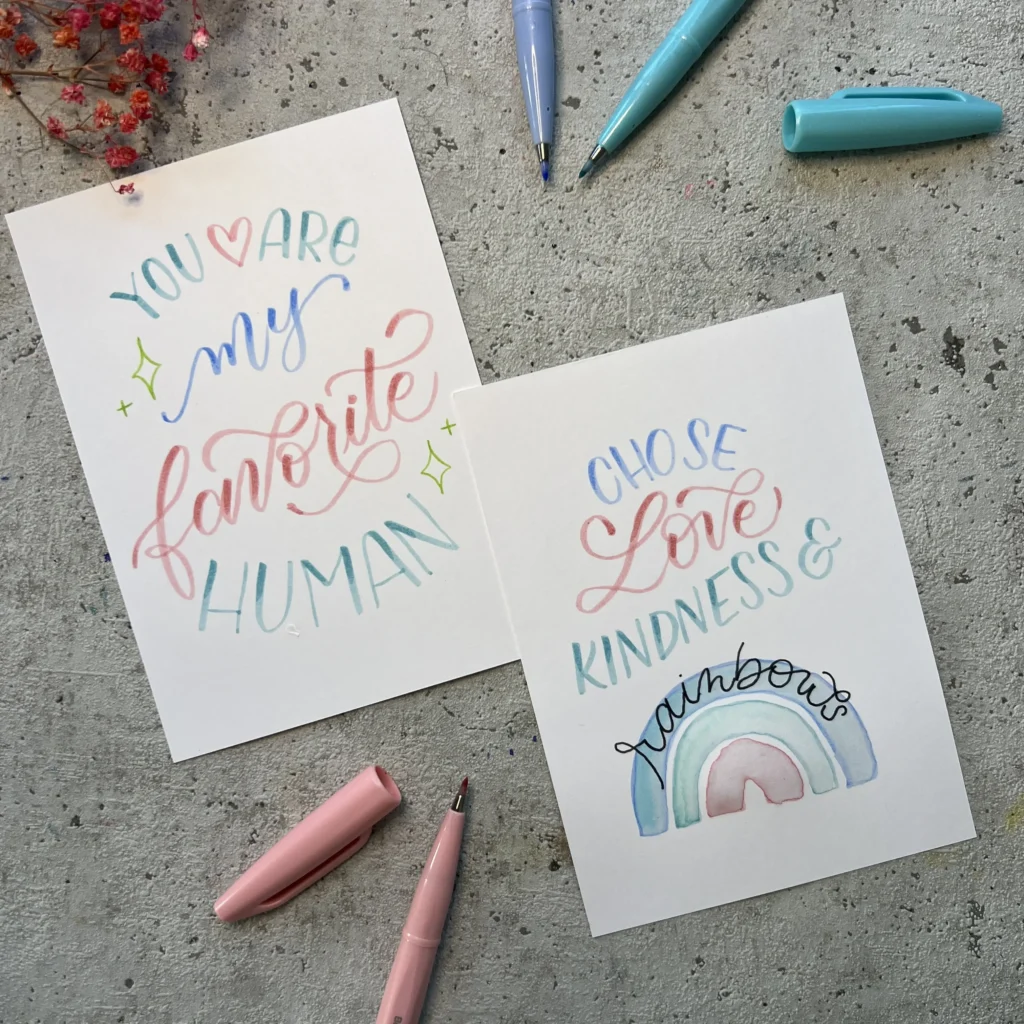 YOU ♡ ARE
my
favorite
HUMAN
CHOSE
Love
KINDNESS &
rainbows